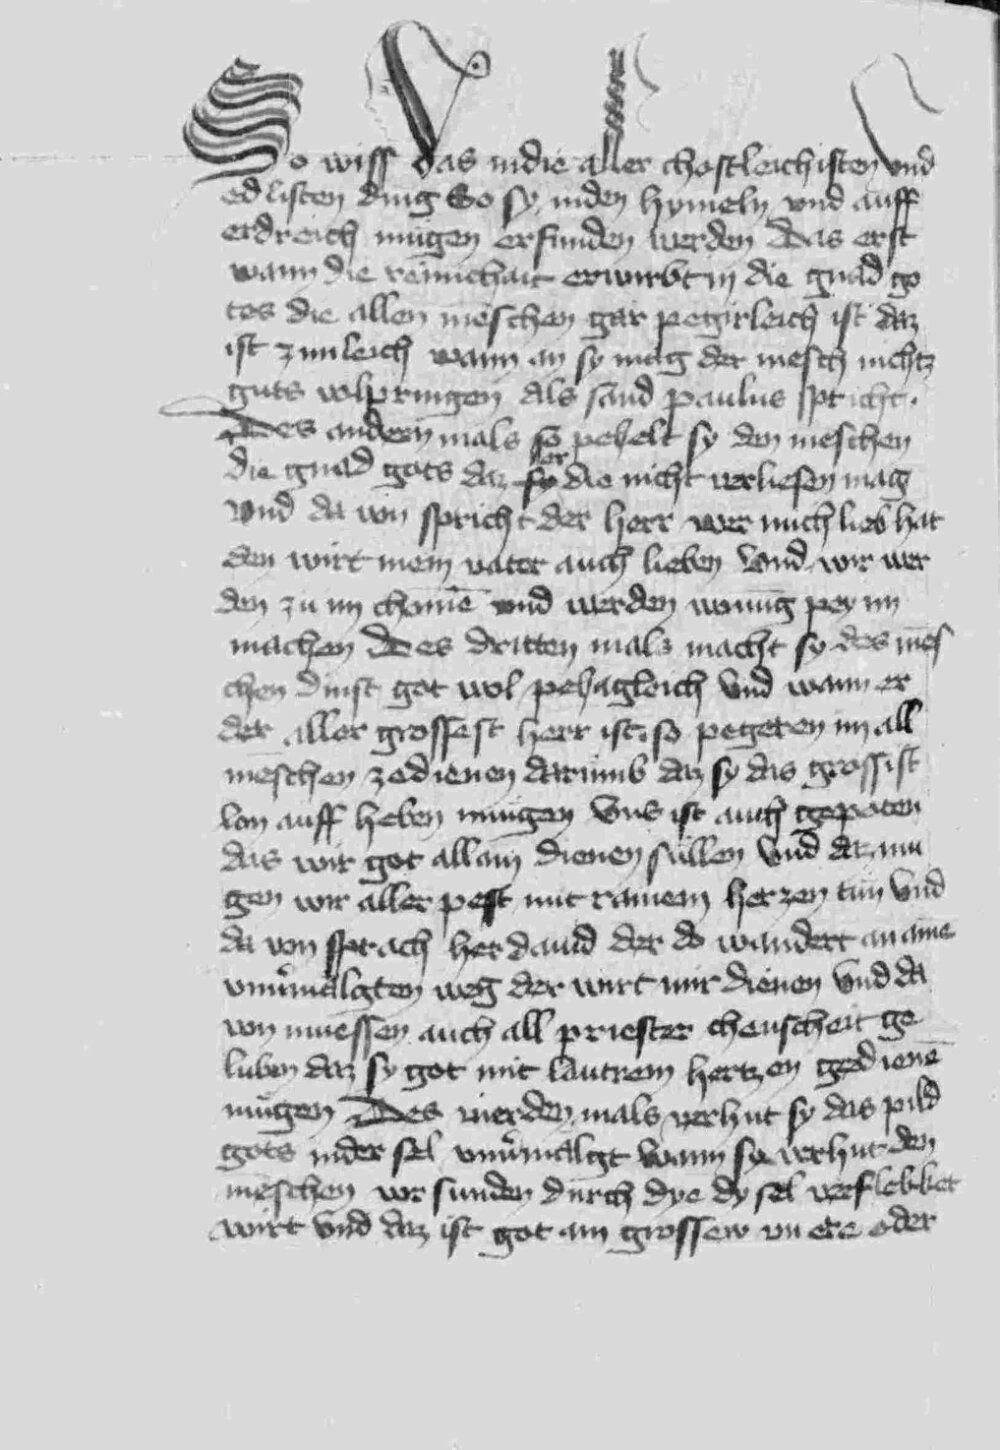 So wiss das indie aller chostleichisten vnd
edlisten ding So sy inden hymeln vnd auff
erdreich mugen erfunden werden Das erst
wann die rainichait erwirbt in die gnad go
tes die allen menschen gar pegirleich ist daz
ist zimleich wann an sy mag der mesch nichtz
guts volpringen als sand paulus spricht.
Des andern mals so pehelt sy den meschen
die gnad gots daz er die nicht verliesen mag
Vnd da von spricht der herr wer mich lieb hat
den wirt mein vater auch lieben Vnd wir wer
den zu im chomē vnd werden wonūg pey im
machen Des dritten mals macht sy des mēs
chen dinst got wol pehagleich Vnd wann er
der aller grossest herr ist so pegeren im all
meschen zedienen darumb daz sy das grossist
lon auff heben mugen Vns ist auch gepoten
das wir got allain dienen sullen Vnd daz mu
gen wir aller pest mit rainem herzen tun Vnd
da von sprach her dauid der do wandert an aine
vnuermalgten weg der wirt mir dienen Vnd da
von muessen auch all priester cheuscheit ge
luben daz sy got mit lautrem hertzen gedienē
mugen Des vierden mals verhut sy das pild
gots inder sel vnuermalgt Wann sy verhut den
meschen vor sunden durch dye dy sel verflekket
wirt Vnd daz ist got ain grossew vn ere oder